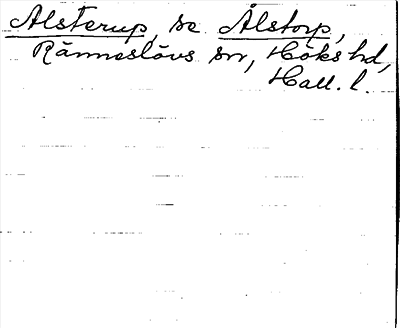 Alsterup, se Ålstorp,
Ränneslövs sn, Höks hd,
Hall. l.